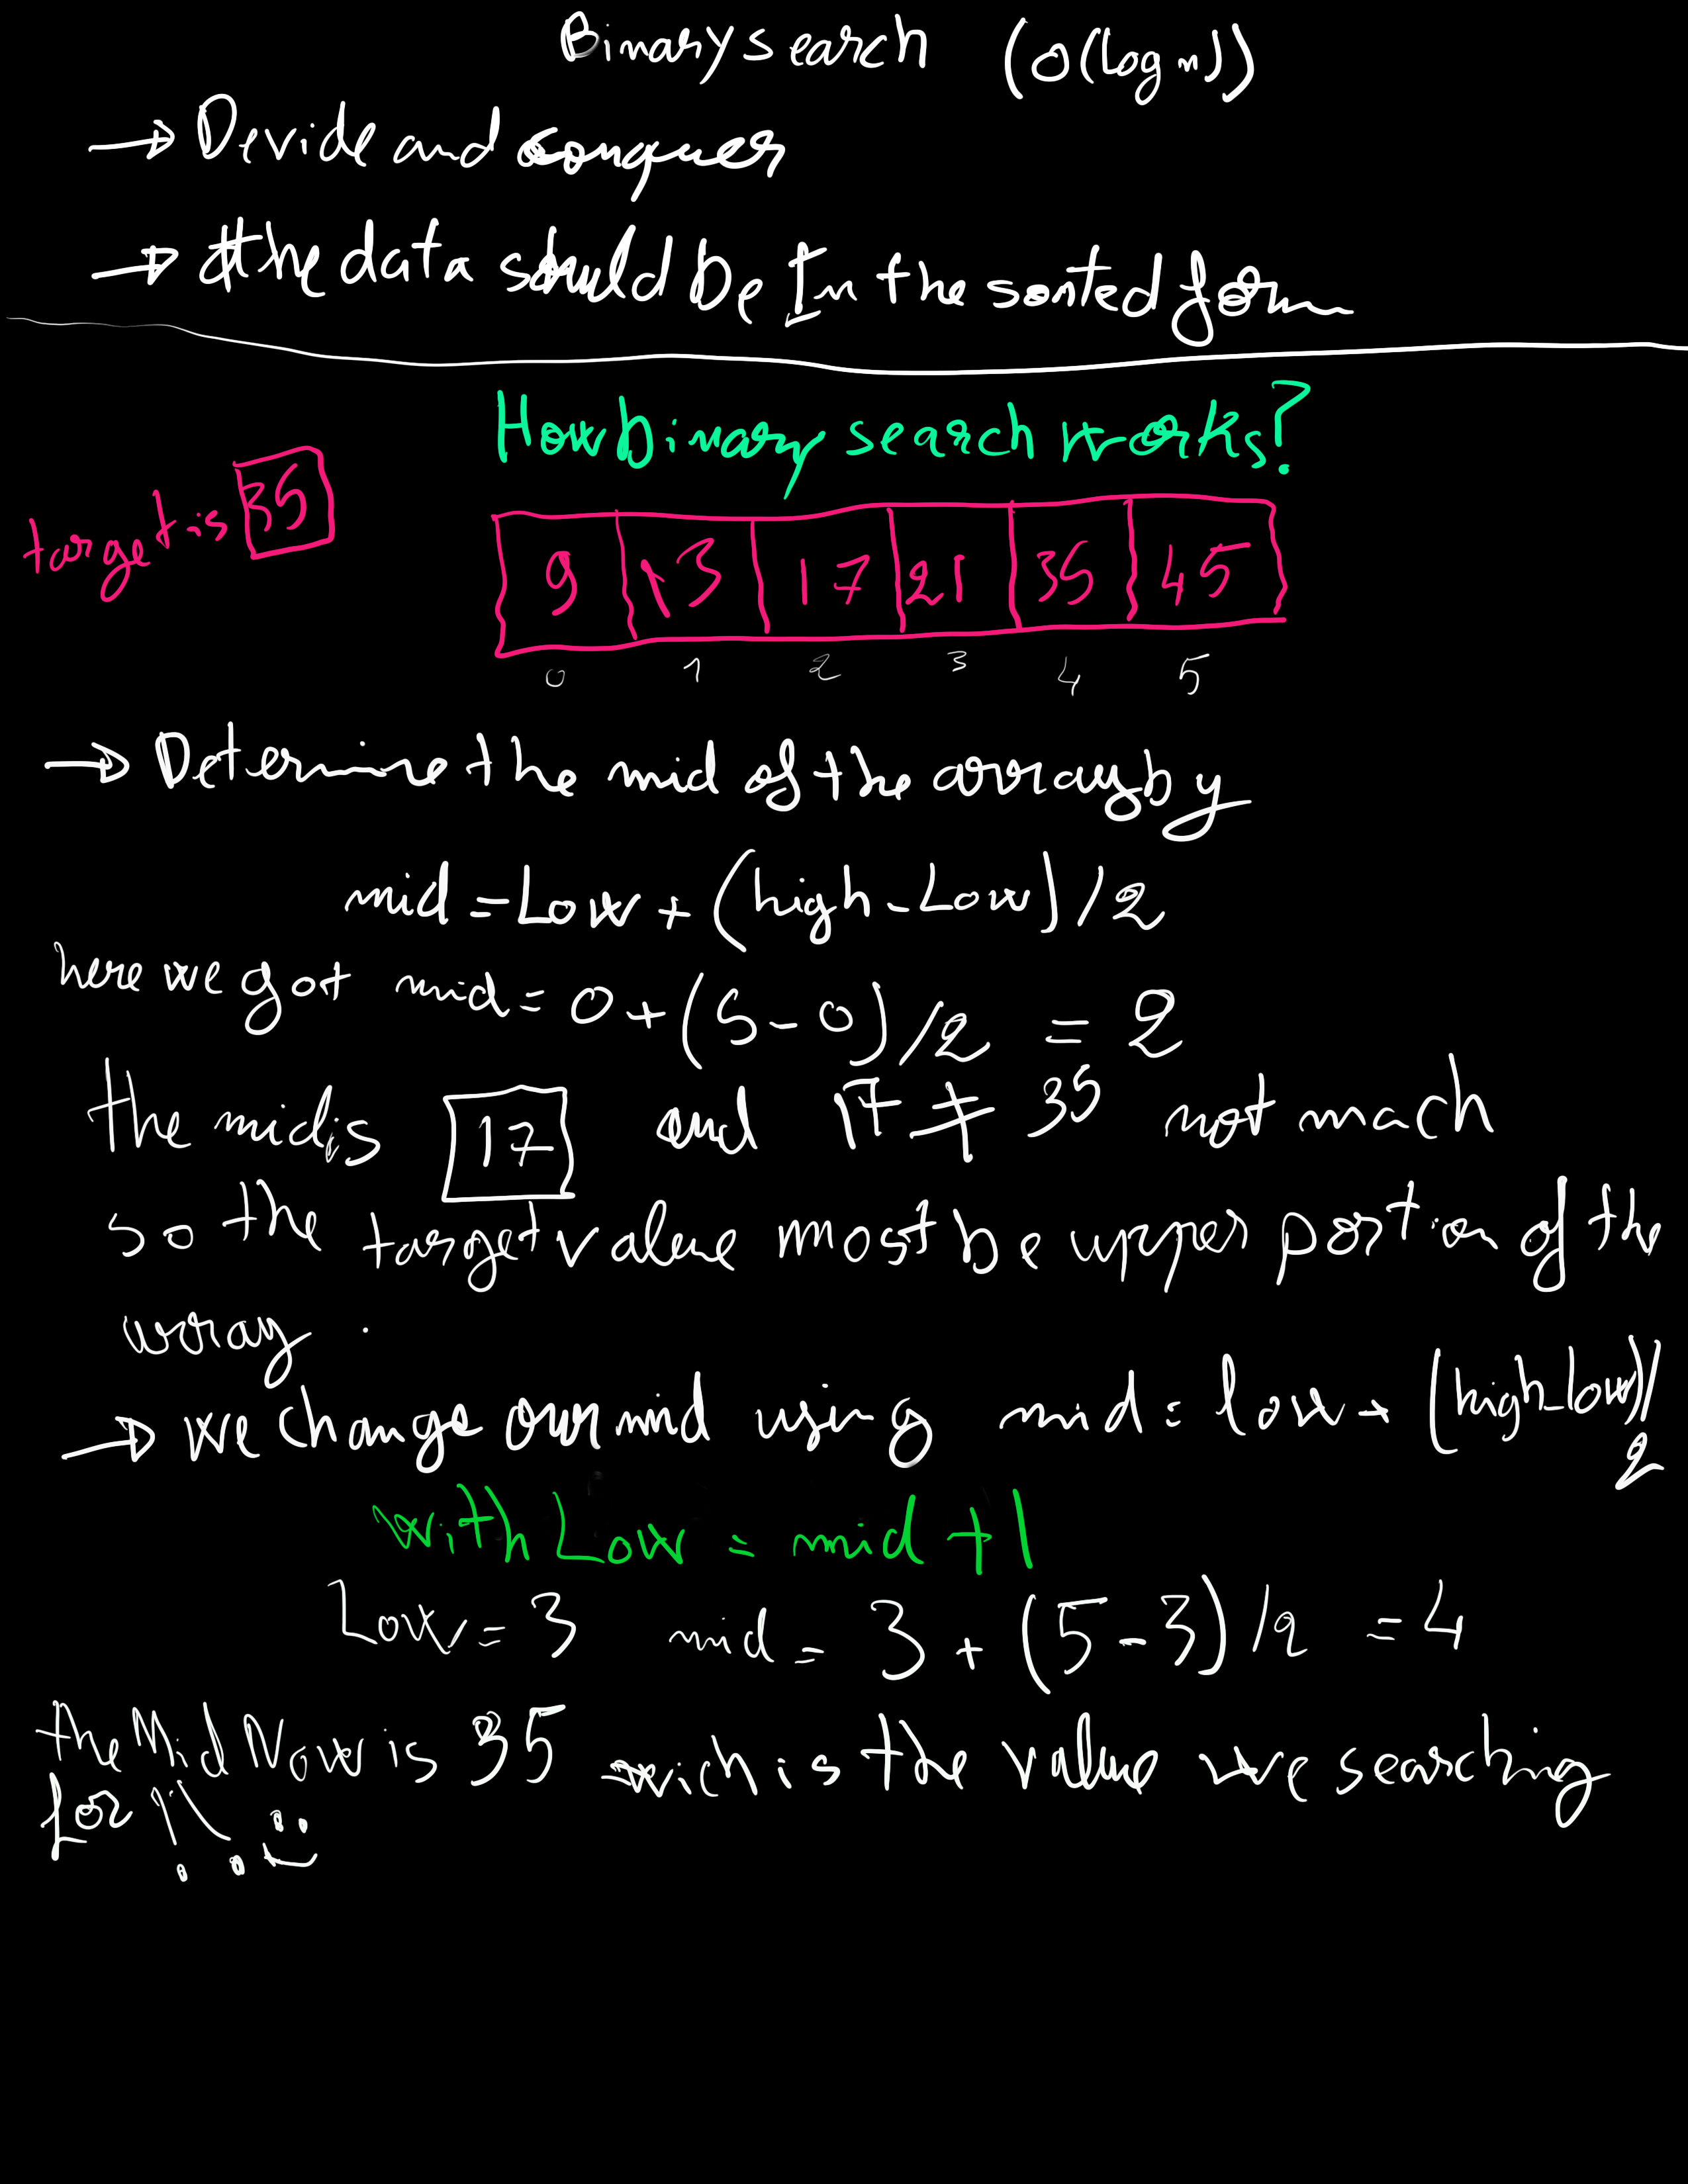 Binary search (O(log n))
→ Devide and conquer
→ the data should be In the sorted form
How binary search works?
target is 35
9 13 17 21 35 45
0 1 2 3 4 5
→ Determine the mid of the array by
mid = Low + (high - Low) / 2
here we got mid = 0 + (5 - 0) / 2 = 2
the mid is 17 and 17 ≠ 35 not mach
so the target value most be upper portion of the
array .
→ we change our mid using mid = low + (high - low) / 2
with Low = mid + 1
Low = 3 mid = 3 + (5 - 3) / 2 = 4
the Mid Now is 35 wich is the value we searching
for !! :)